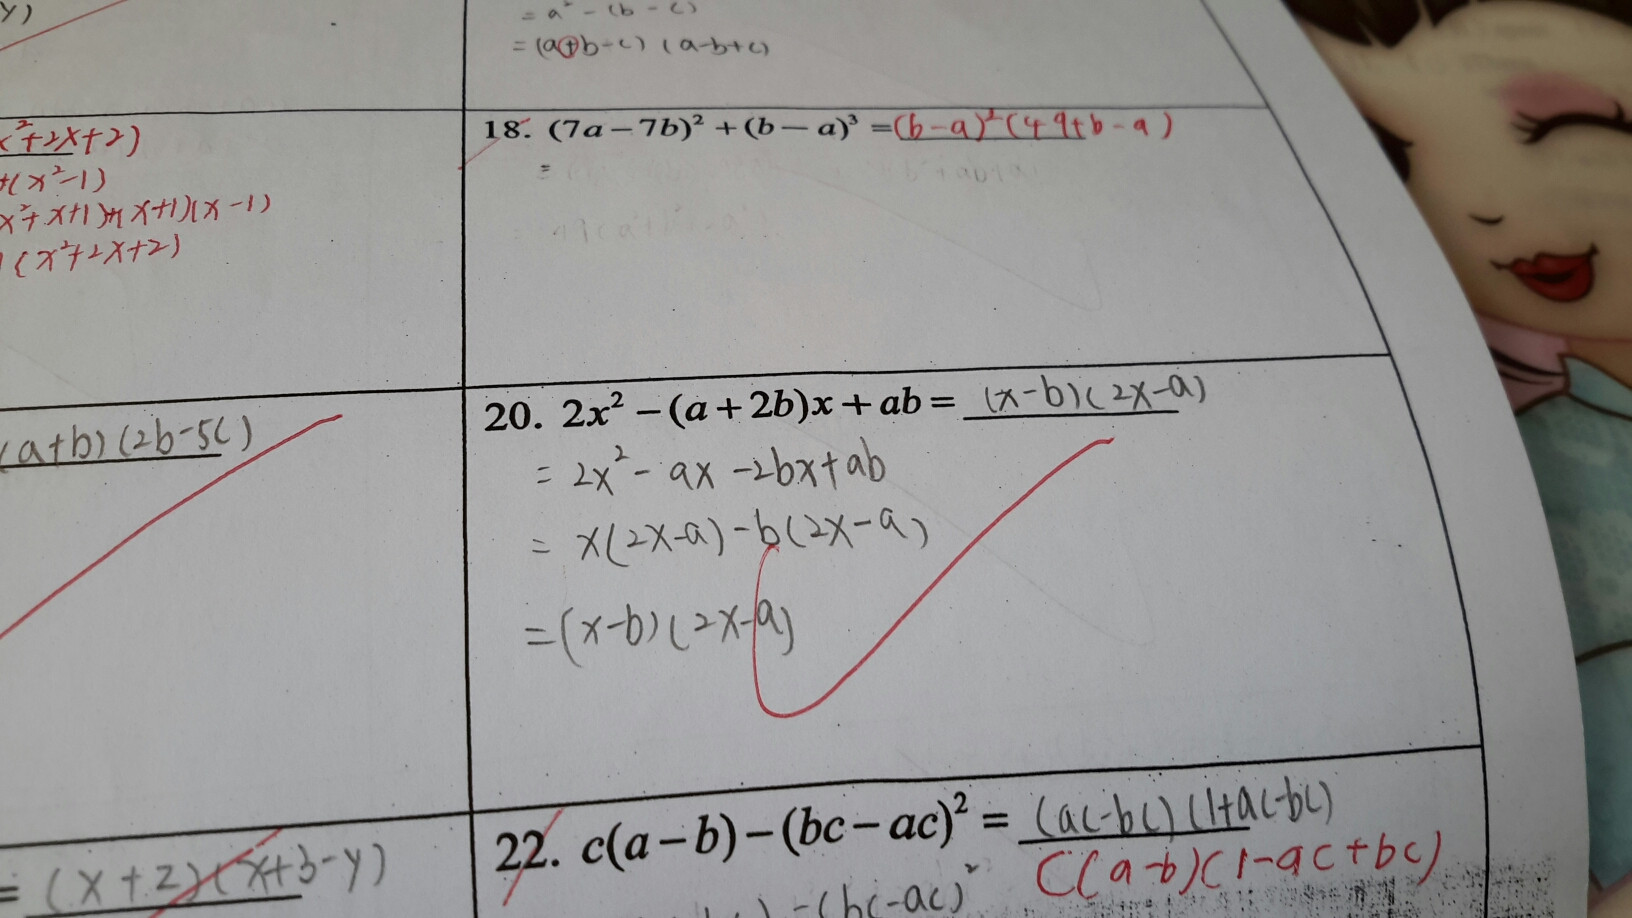 y)
= a² - (b - c)
= (a+b-c) (a-b+c)
x²+2x+2)
+(x²-1)
x²+x+1)+(x+1)(x-1)
(x²+2x+2)
18. (7a-7b)² + (b-a)³ = (b-a)²(49+b-a)
=
(a+b)(2b-5c)
20. 2x² - (a+2b)x + ab = (x-b)(2x-a)
= 2x² - ax - 2bx + ab
= x(2x-a) - b(2x-a)
= (x-b)(2x-a)
= (x+2)(x+3-y)
22. c(a-b) - (bc-ac)² = (ac-bc)(1+ac-bc)
C(a-b)(1-ac+bc)
) - (bc-ac)²